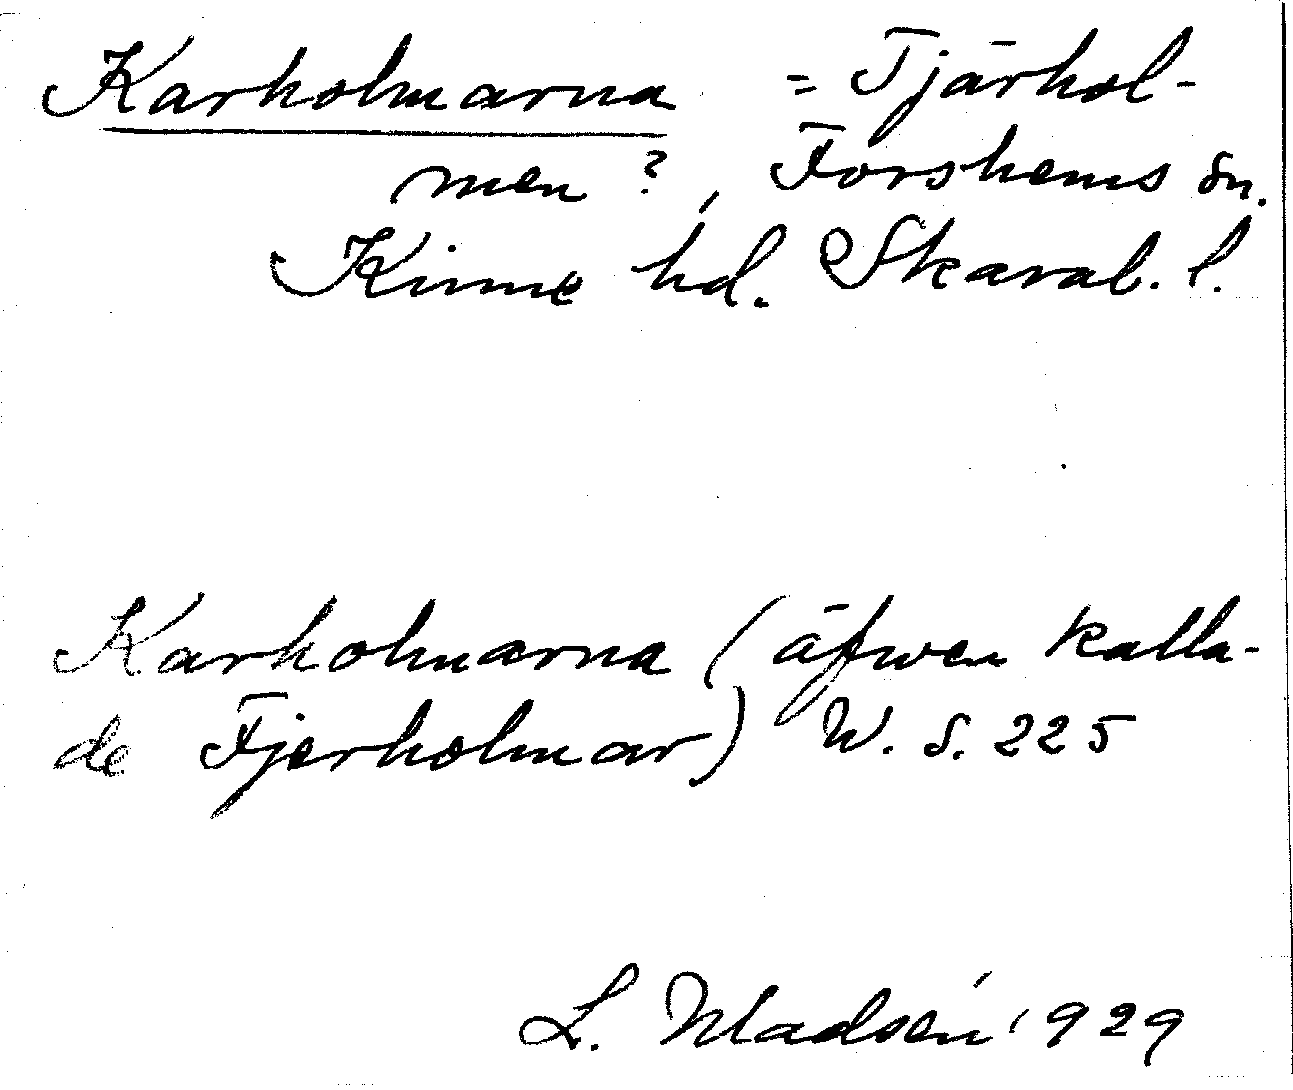 Karholmarna = Tjärhol-
men?, Forshems sn.
Kinne hd. Skarab. l.
Karholmarna (äfwen kalla-
de Fjerholmar) W. S. 225
L. Madsén 1929